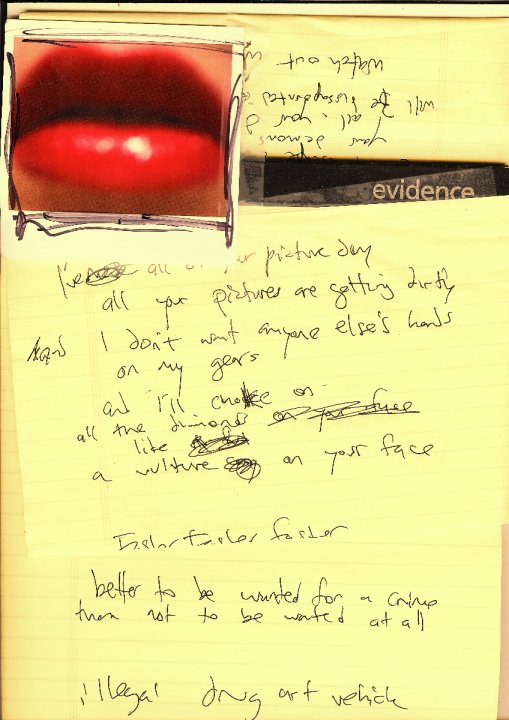 watch out
will be disappointed
all your
your demons
evidence
I've all of your picture day
all your pictures are getting dirty
I don't want anyone else's hands
on my gears
and I'll choke on
all the
like
a vulture on your face
faster faster faster
better to be wanted for a crime
than not to be wanted at all
illegal drug art vehicle